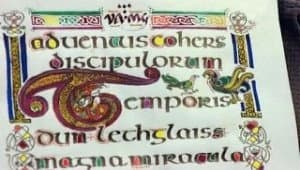 aduentus cohers
discipulorum
Temporis
dun lechglaiss
magna miracula